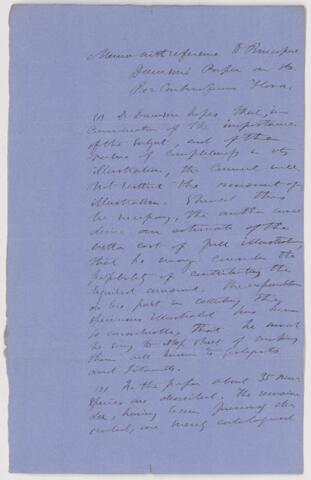 Memo with reference to Principal
Dawson's Paper on the
Pre-Carboniferous Flora.
(1) Dr Dawson hopes that, in
consideration of the importance
of the subject and of the
value of completeness in its
illustration, the Council will
not restrict the amount of
illustration. Should this
be necessary, the author would
desire an estimate of the
extra cost of full illustration,
that he may consider the
possibility of contributing the
required amount. The expenditure
on his part in collecting the
specimens illustrated has been
so considerable that he would
be sorry to stop short of making
them well known to geologists
and botanists.
(2) In the paper about 35 new
species are described. The remain
der, having been previously des
cribed, are merely catalogued